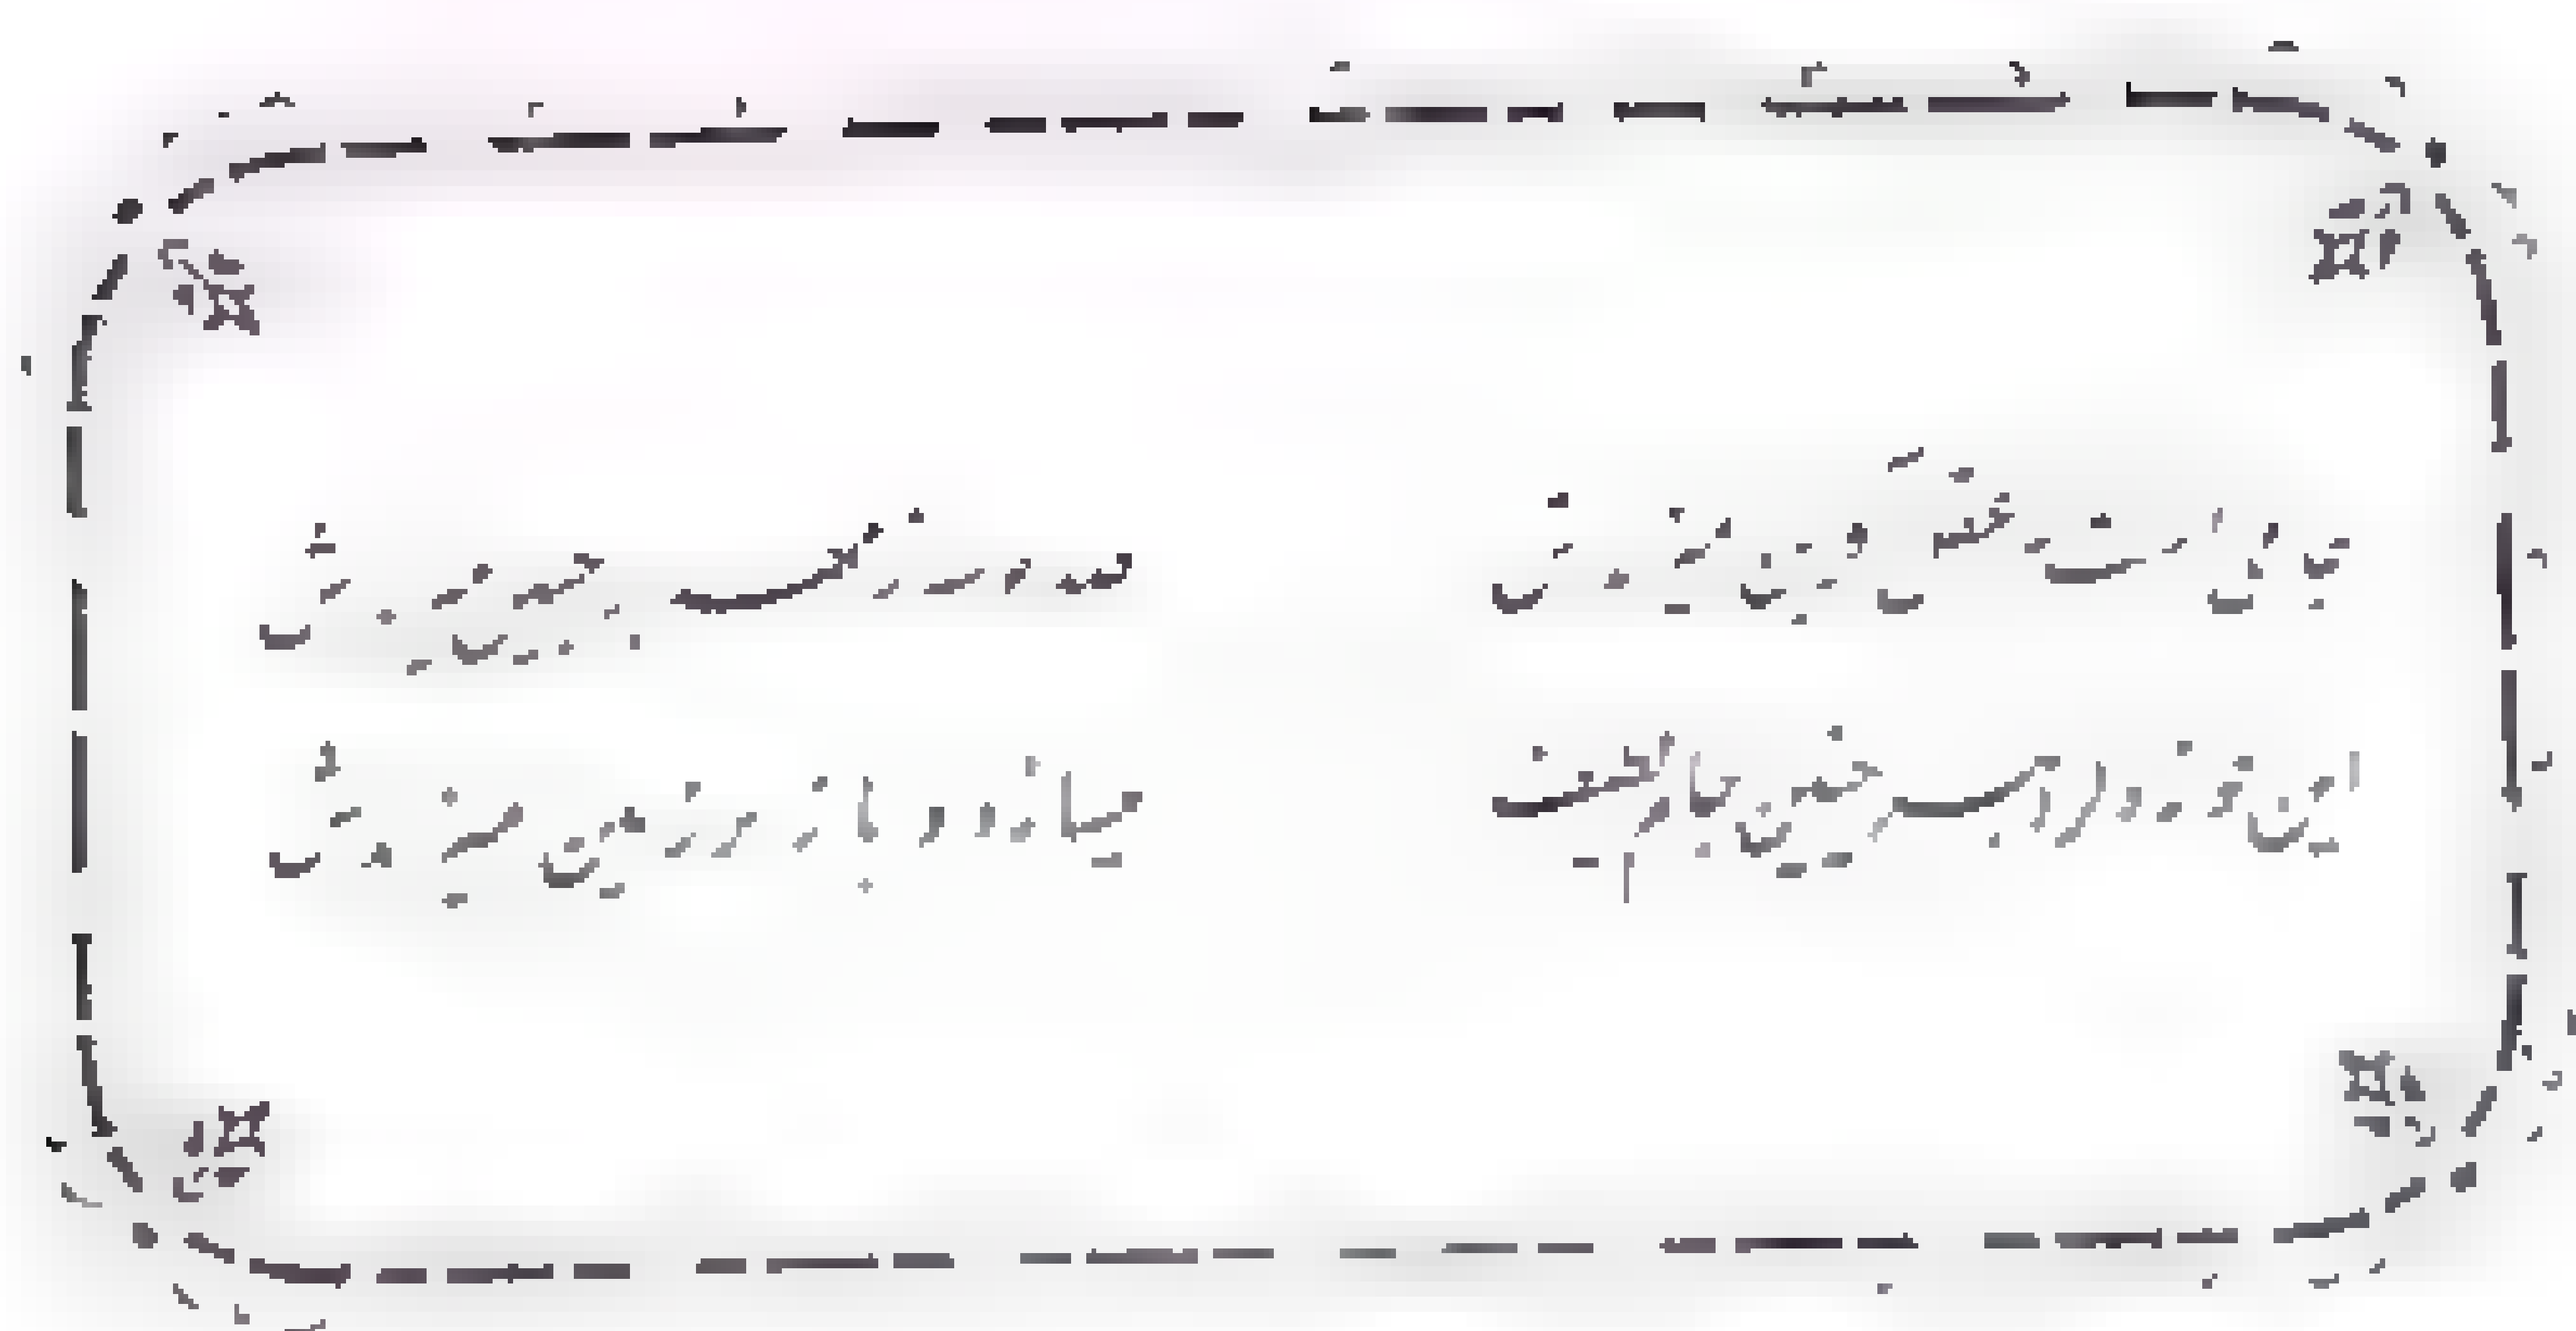 جامی است که عقل آفرین میزندش صد بوسه ز مهر بر جبین میزندش
این کوزه گر دهر چنین جام لطیف میسازد و باز بر زمین میزندش